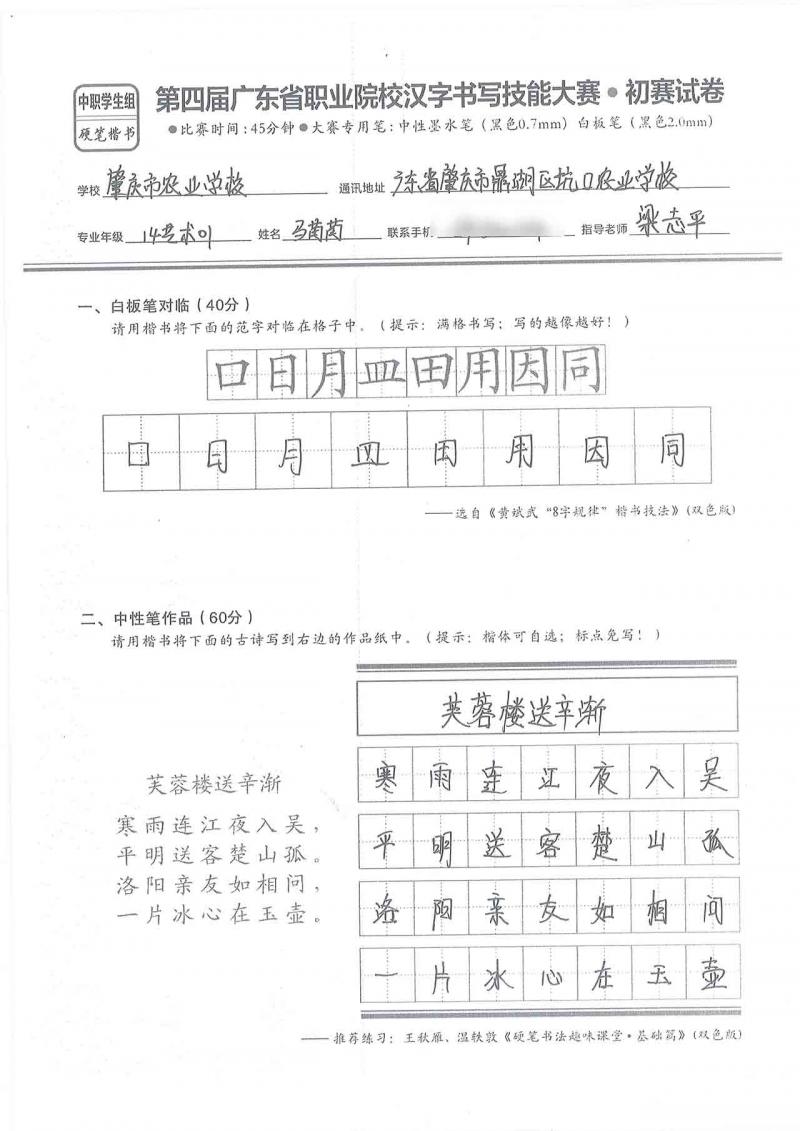 中职学生组
硬笔楷书
第四届广东省职业院校汉字书写技能大赛·初赛试卷
●比赛时间:45分钟●大赛专用笔:中性墨水笔(黑色0.7mm)白板笔(黑色2.0mm)
学校 肇庆市农业学校 通讯地址 广东省肇庆市鼎湖区坑口农业学校
专业年级 14艺术01 姓名 马茵茵 联系手机 指导老师 梁志平
一、白板笔对临(40分)
请用楷书将下面的范字对临在格子中。(提示:满格书写;写的越像越好!)
口日月皿田用因同
口日月皿田用因同
——选自《黄斌武“8字规律”楷书技法》(双色版)
二、中性笔作品(60分)
请用楷书将下面的古诗写到右边的作品纸中。(提示:楷体可自选;标点免写!)
芙蓉楼送辛渐
寒雨连江夜入吴,
平明送客楚山孤。
洛阳亲友如相问,
一片冰心在玉壶。
芙蓉楼送辛渐
寒雨连江夜入吴
平明送客楚山孤
洛阳亲友如相问
一片冰心在玉壶
——推荐练习:王秋雁、温轶敦《硬笔书法趣味课堂·基础篇》(双色版)